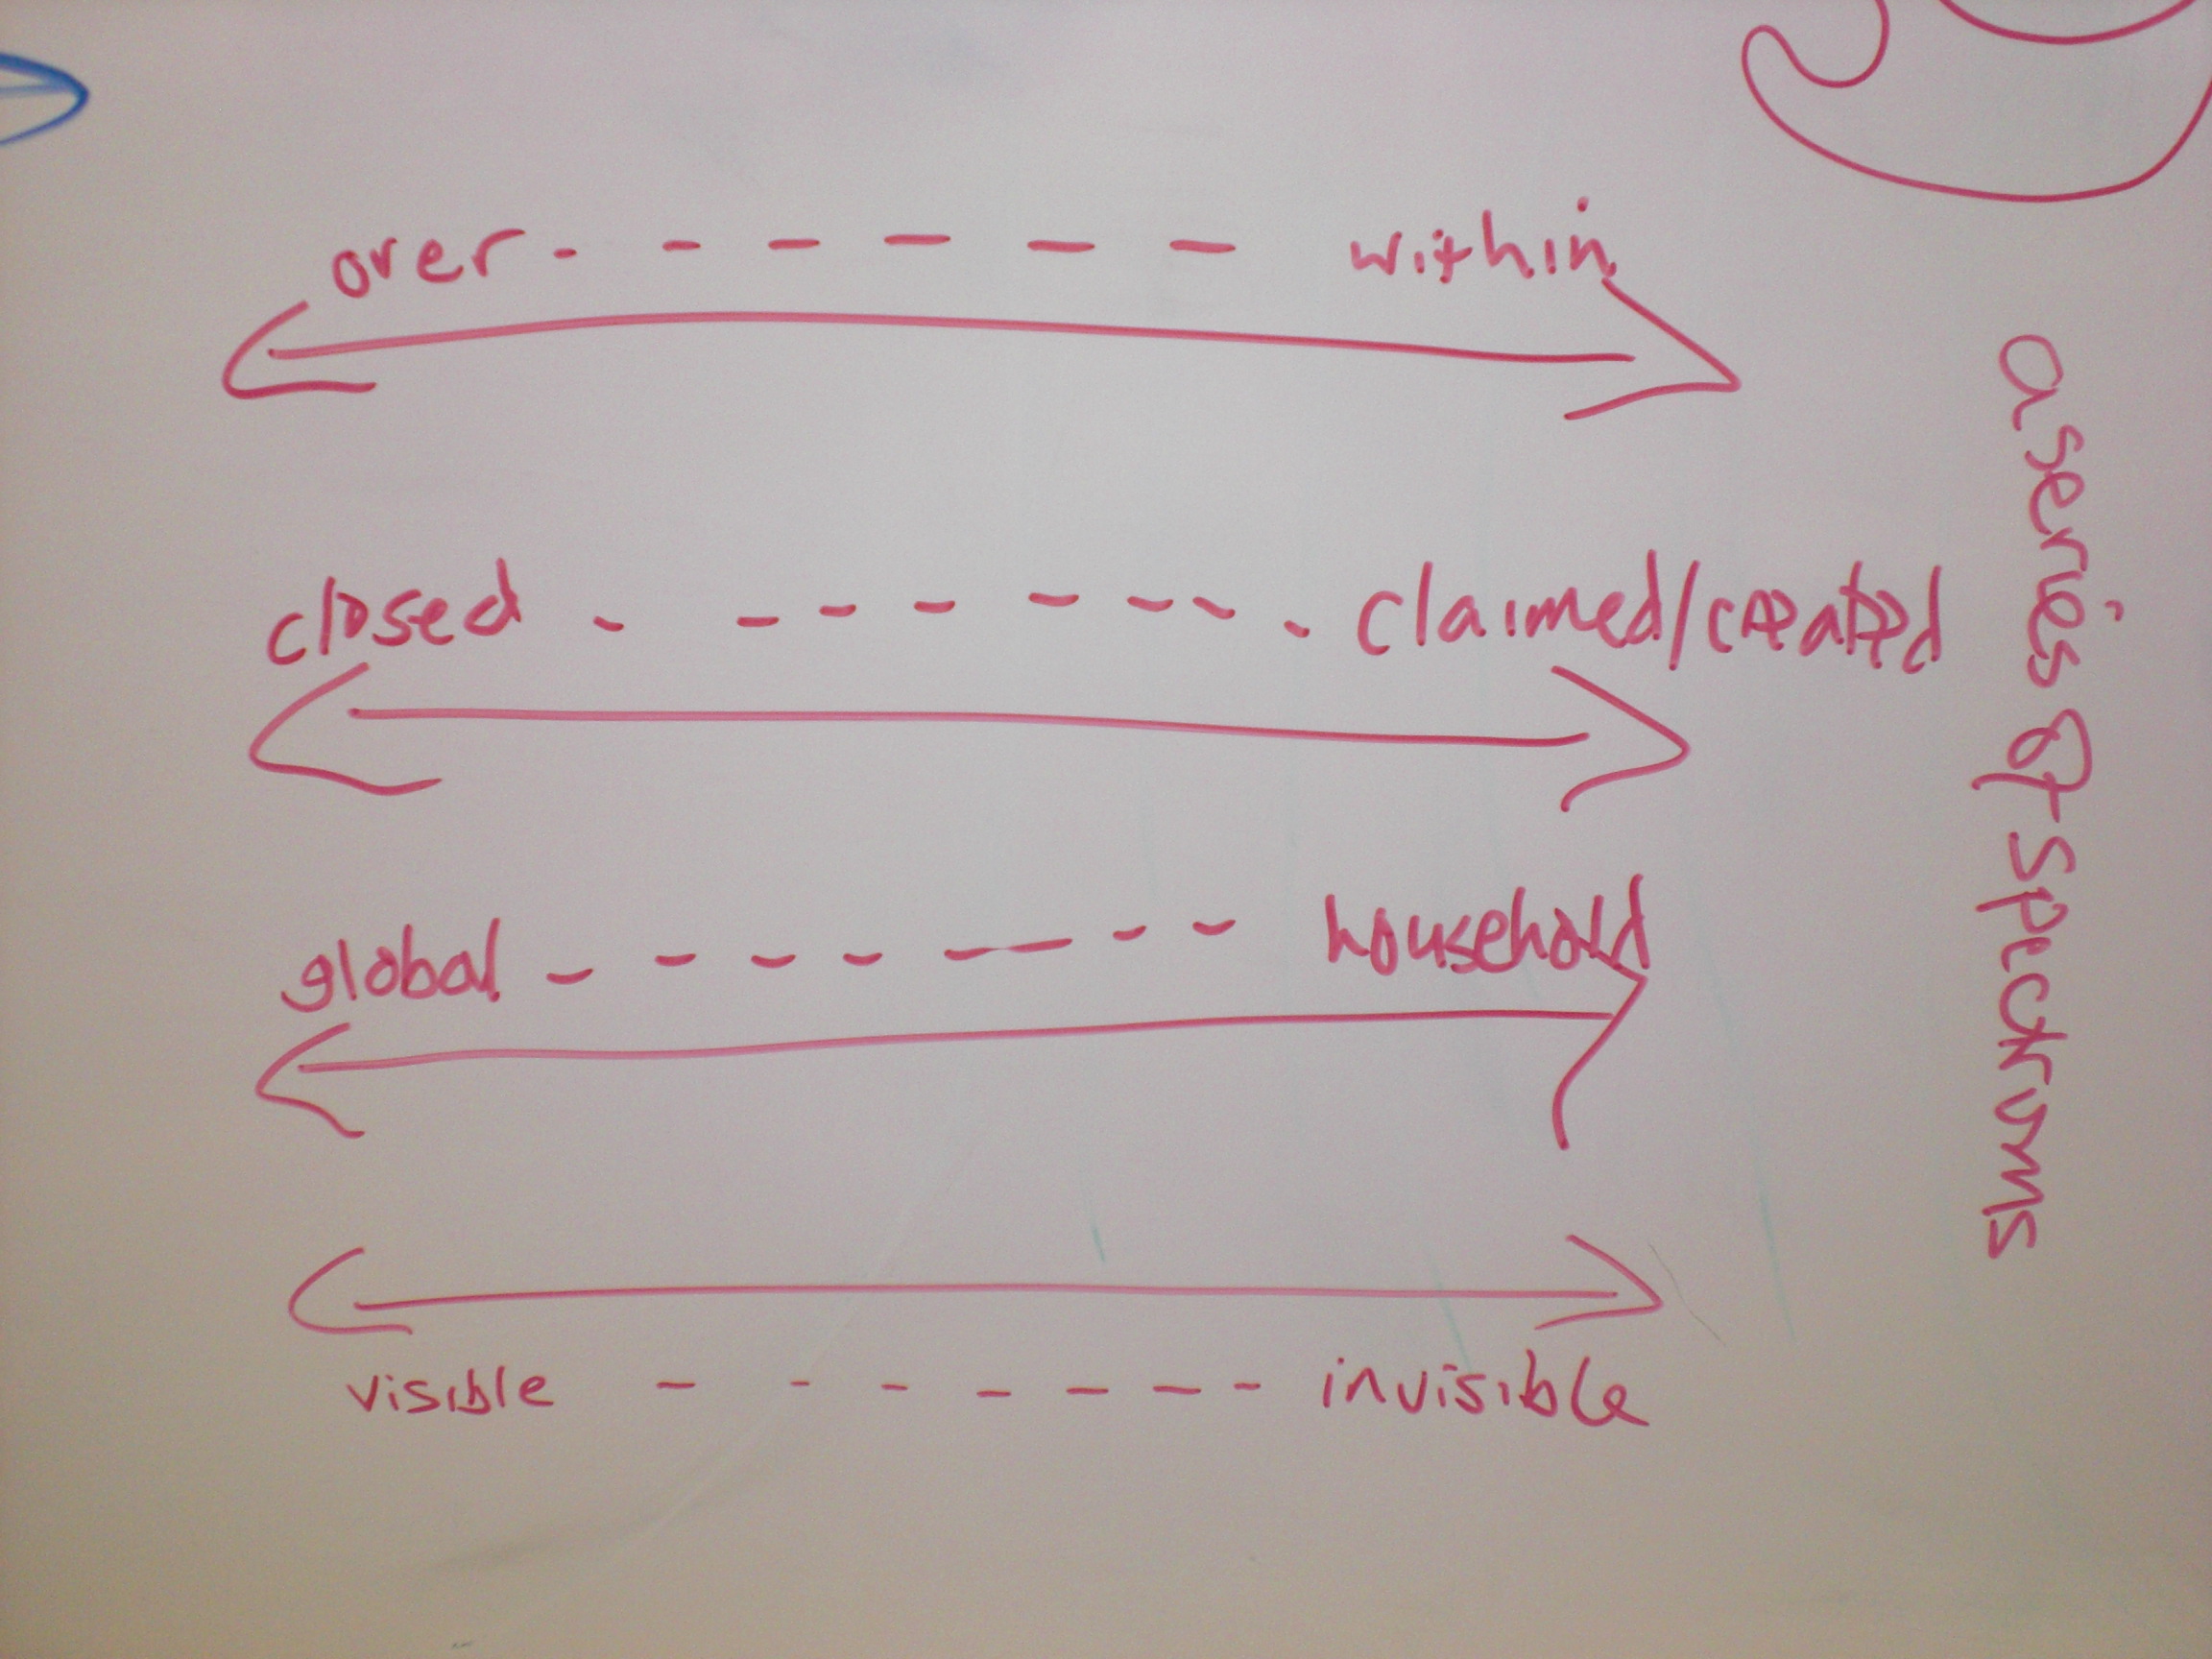 over - - - - - - within
closed - - - - - - - - claimed/created
global - - - - - - - household
visible - - - - - - - invisible
a series of spectrums